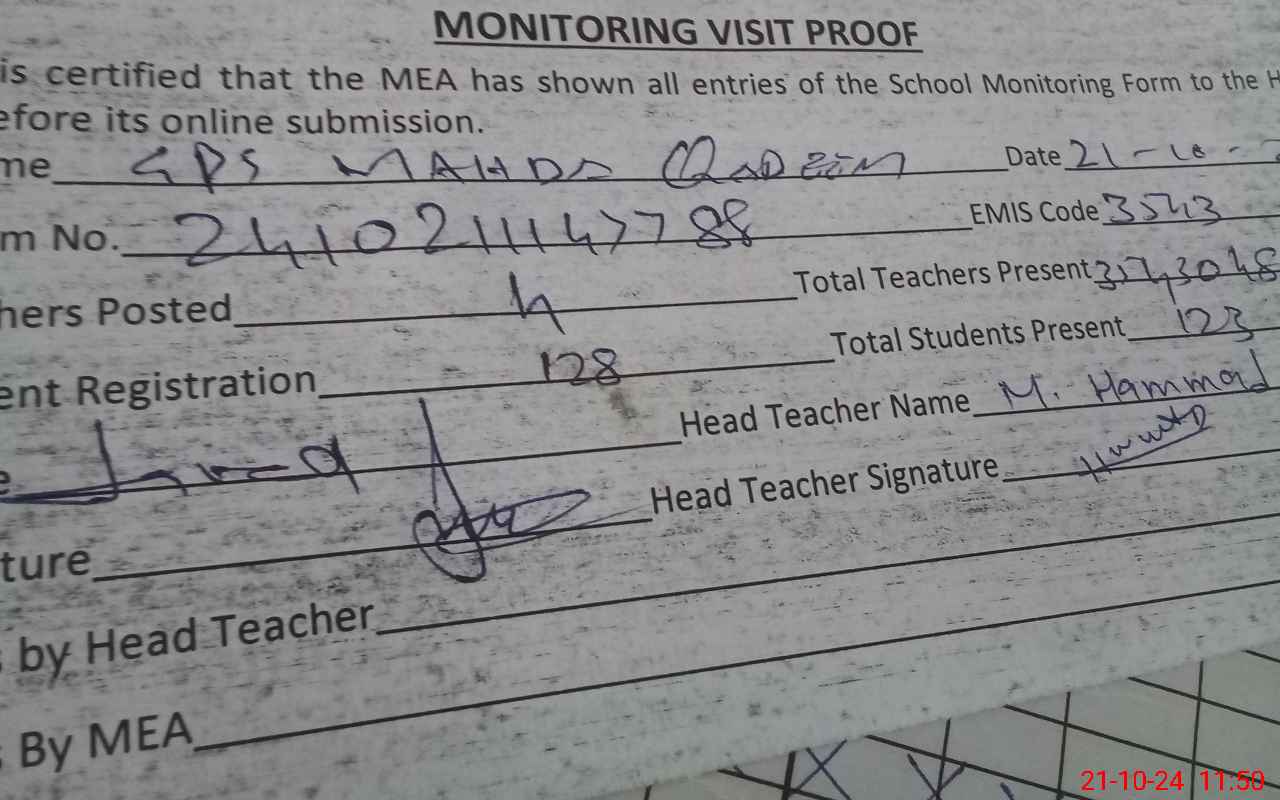 MONITORING VISIT PROOF
is certified that the MEA has shown all entries of the School Monitoring Form to the H
efore its online submission.
me GPS MAHDA QADEEM Date 21-10-
m No. 24102111147788 EMIS Code 3543
hers Posted 4 Total Teachers Present
ent Registration 128 Total Students Present 123
e Head Teacher Name M. Hammad
ture Head Teacher Signature
s by Head Teacher
s By MEA
21-10-24 11:50